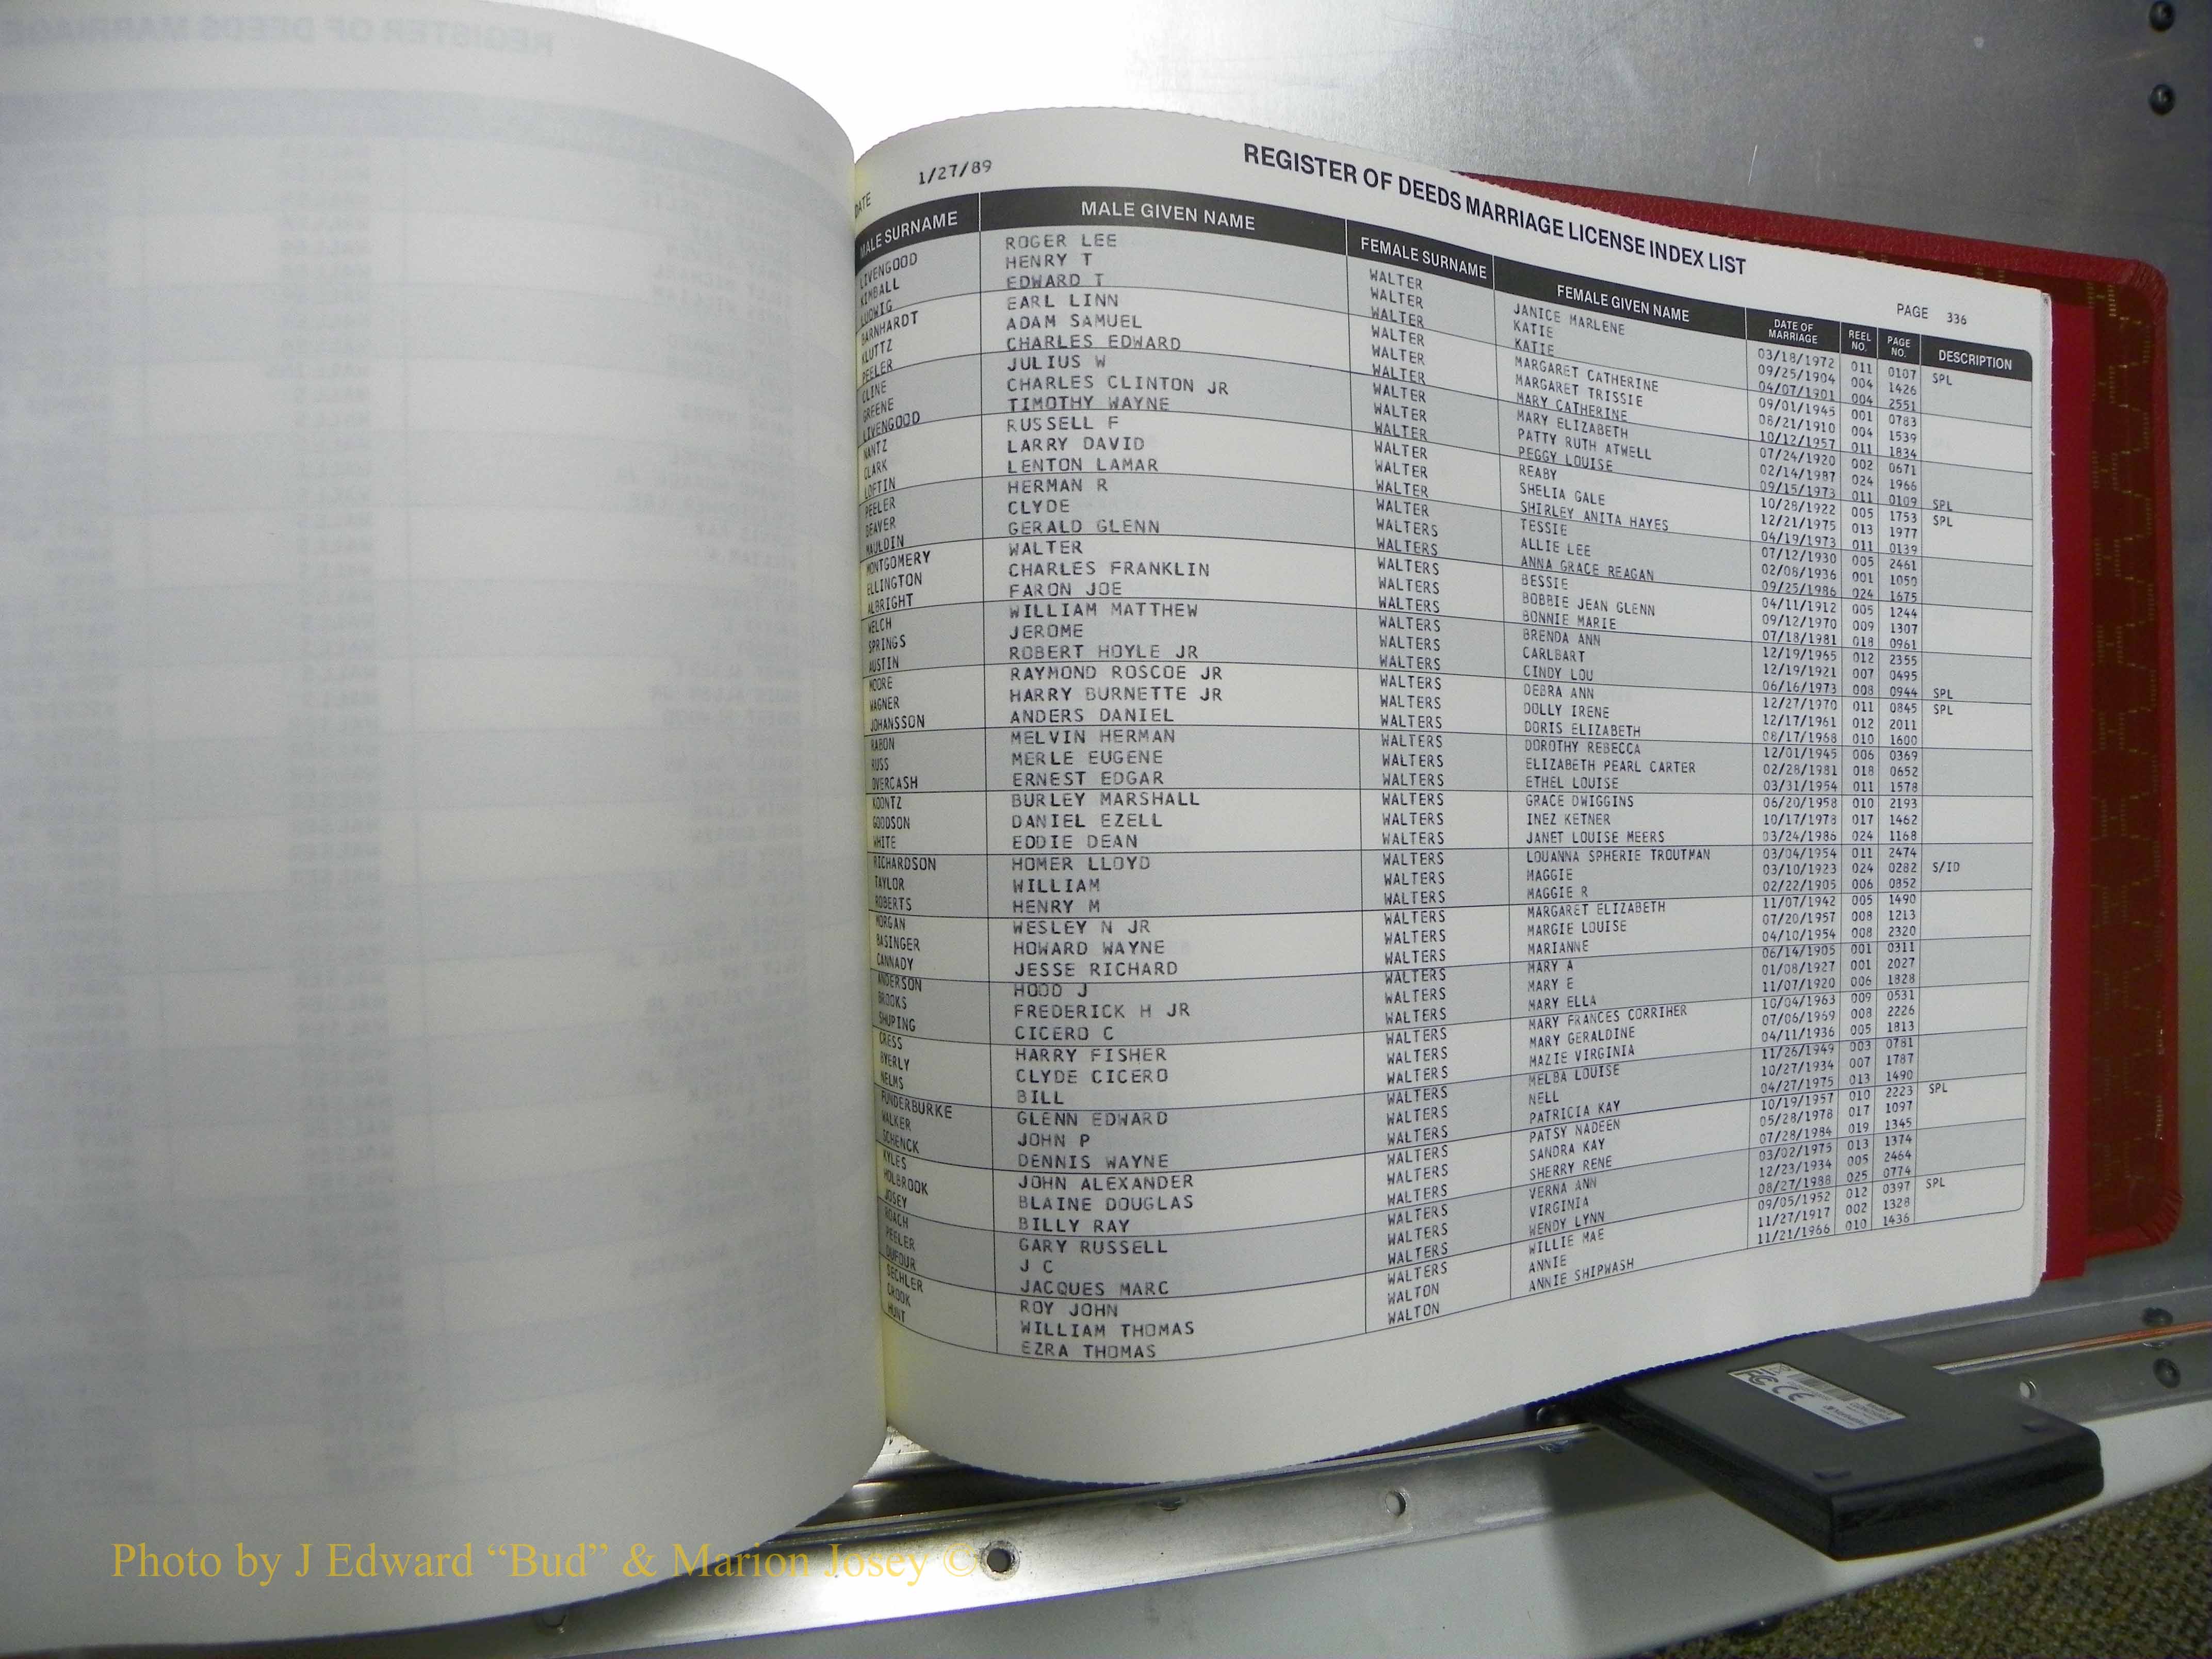 REGISTER OF DEEDS MARRIAGE
DATE 1/27/89
REGISTER OF DEEDS MARRIAGE LICENSE INDEX LIST
PAGE 336
MALE SURNAME MALE GIVEN NAME FEMALE SURNAME FEMALE GIVEN NAME DATE OF MARRIAGE REEL NO. PAGE NO. DESCRIPTION
LIVENGOOD ROGER LEE WALTER JANICE MARLENE 03/18/1972 011 0107 SPL
KIMBALL HENRY T WALTER KATIE 09/25/1904 004 1426
LUDWIG EDWARD T WALTER KATIE 04/07/1901 004 2551
BARNHARDT EARL LINN WALTER MARGARET CATHERINE 09/01/1945 001 0783
KLUTTZ ADAM SAMUEL WALTER MARGARET TRISSIE 08/21/1910 004 1539
PEELER CHARLES EDWARD WALTER MARY CATHERINE 10/12/1957 011 1834
CLINE JULIUS W WALTER MARY ELIZABETH 07/24/1920 002 0671
GREENE CHARLES CLINTON JR WALTER PATTY RUTH ATWELL 02/14/1987 024 1966
LIVENGOOD TIMOTHY WAYNE WALTER PEGGY LOUISE 09/15/1973 011 0109 SPL
NANTZ RUSSELL F WALTER REABY 10/28/1922 005 1753 SPL
CLARK LARRY DAVID WALTER SHELIA GALE 12/21/1975 013 1977
LOFTIN LENTON LAMAR WALTER SHIRLEY ANITA HAYES 04/19/1973 011 0139
PEELER HERMAN R WALTER TESSIE 07/12/1930 005 2461
BEAVER CLYDE WALTERS ALLIE LEE 02/08/1936 001 1050
MAULDIN GERALD GLENN WALTERS ANNA GRACE REAGAN 09/25/1986 024 1675
MONTGOMERY WALTER WALTERS BESSIE 04/11/1912 005 1244
ELLINGTON CHARLES FRANKLIN WALTERS BOBBIE JEAN GLENN 09/12/1970 009 1307
ALBRIGHT FARON JOE WALTERS BONNIE MARIE 07/18/1981 018 0961
WELCH WILLIAM MATTHEW WALTERS BRENDA ANN 12/19/1965 012 2355
SPRINGS JEROME WALTERS CARLBART 12/19/1921 007 0495
AUSTIN ROBERT HOYLE JR WALTERS CINDY LOU 06/16/1973 008 0944 SPL
MOORE RAYMOND ROSCOE JR WALTERS DEBRA ANN 12/27/1970 011 0845 SPL
WAGNER HARRY BURNETTE JR WALTERS DOLLY IRENE 12/17/1961 012 2011
JOHANSSON ANDERS DANIEL WALTERS DORIS ELIZABETH 08/17/1968 010 1600
RABON MELVIN HERMAN WALTERS DOROTHY REBECCA 12/01/1945 006 0369
RUSS MERLE EUGENE WALTERS ELIZABETH PEARL CARTER 02/28/1981 018 0652
OVERCASH ERNEST EDGAR WALTERS ETHEL LOUISE 03/31/1954 011 1578
KOONTZ BURLEY MARSHALL WALTERS GRACE DWIGGINS 06/20/1958 010 2193
GOODSON DANIEL EZELL WALTERS INEZ KETNER 10/17/1978 017 1462
WHITE EDDIE DEAN WALTERS JANET LOUISE MEERS 03/24/1986 024 1168
RICHARDSON HOMER LLOYD WALTERS LOUANNA SPHERIE TROUTMAN 03/04/1954 011 2474
TAYLOR WILLIAM WALTERS MAGGIE 03/10/1923 024 0282 S/ID
ROBERTS HENRY M WALTERS MAGGIE R 02/22/1905 006 0852
MORGAN WESLEY N JR WALTERS MARGARET ELIZABETH 11/07/1942 005 1490
BASINGER HOWARD WAYNE WALTERS MARGIE LOUISE 07/20/1957 008 1213
CANNADY JESSE RICHARD WALTERS MARIANNE 04/10/1954 008 2320
ANDERSON HOOD J WALTERS MARY A 06/14/1905 001 0311
BROOKS FREDERICK H JR WALTERS MARY E 01/08/1927 001 2027
SHUPING CICERO C WALTERS MARY ELLA 11/07/1920 006 1828
CRESS HARRY FISHER WALTERS MARY FRANCES CORRIHER 10/04/1963 009 0531
BYERLY CLYDE CICERO WALTERS MARY GERALDINE 07/06/1969 008 2226
NELMS BILL WALTERS MAZIE VIRGINIA 04/11/1936 005 1813
FUNDERBURKE GLENN EDWARD WALTERS MELBA LOUISE 11/26/1949 003 0781
WALKER JOHN P WALTERS NELL 10/27/1934 007 1787
SCHENCK DENNIS WAYNE WALTERS PATRICIA KAY 04/27/1975 013 1490
KYLES JOHN ALEXANDER WALTERS PATSY NADEEN 10/19/1957 010 2223 SPL
HOLBROOK BLAINE DOUGLAS WALTERS SANDRA KAY 05/28/1978 017 1097
JOSEY BILLY RAY WALTERS SHERRY RENE 07/28/1984 019 1345
ROACH GARY RUSSELL WALTERS VERNA ANN 03/02/1975 013 1374
PEELER J C WALTERS VIRGINIA 12/23/1934 005 2464
DUFOUR JACQUES MARC WALTERS WENDY LYNN 08/27/1988 025 0774
SECHLER ROY JOHN WALTERS WILLIE MAE 09/05/1952 012 0397 SPL
CROOK WILLIAM THOMAS WALTON ANNIE 11/27/1917 002 1328
HUNT EZRA THOMAS WALTON ANNIE SHIPWASH 11/21/1966 010 1436
FC CE
Photo by J Edward “Bud” & Marion Josey ©